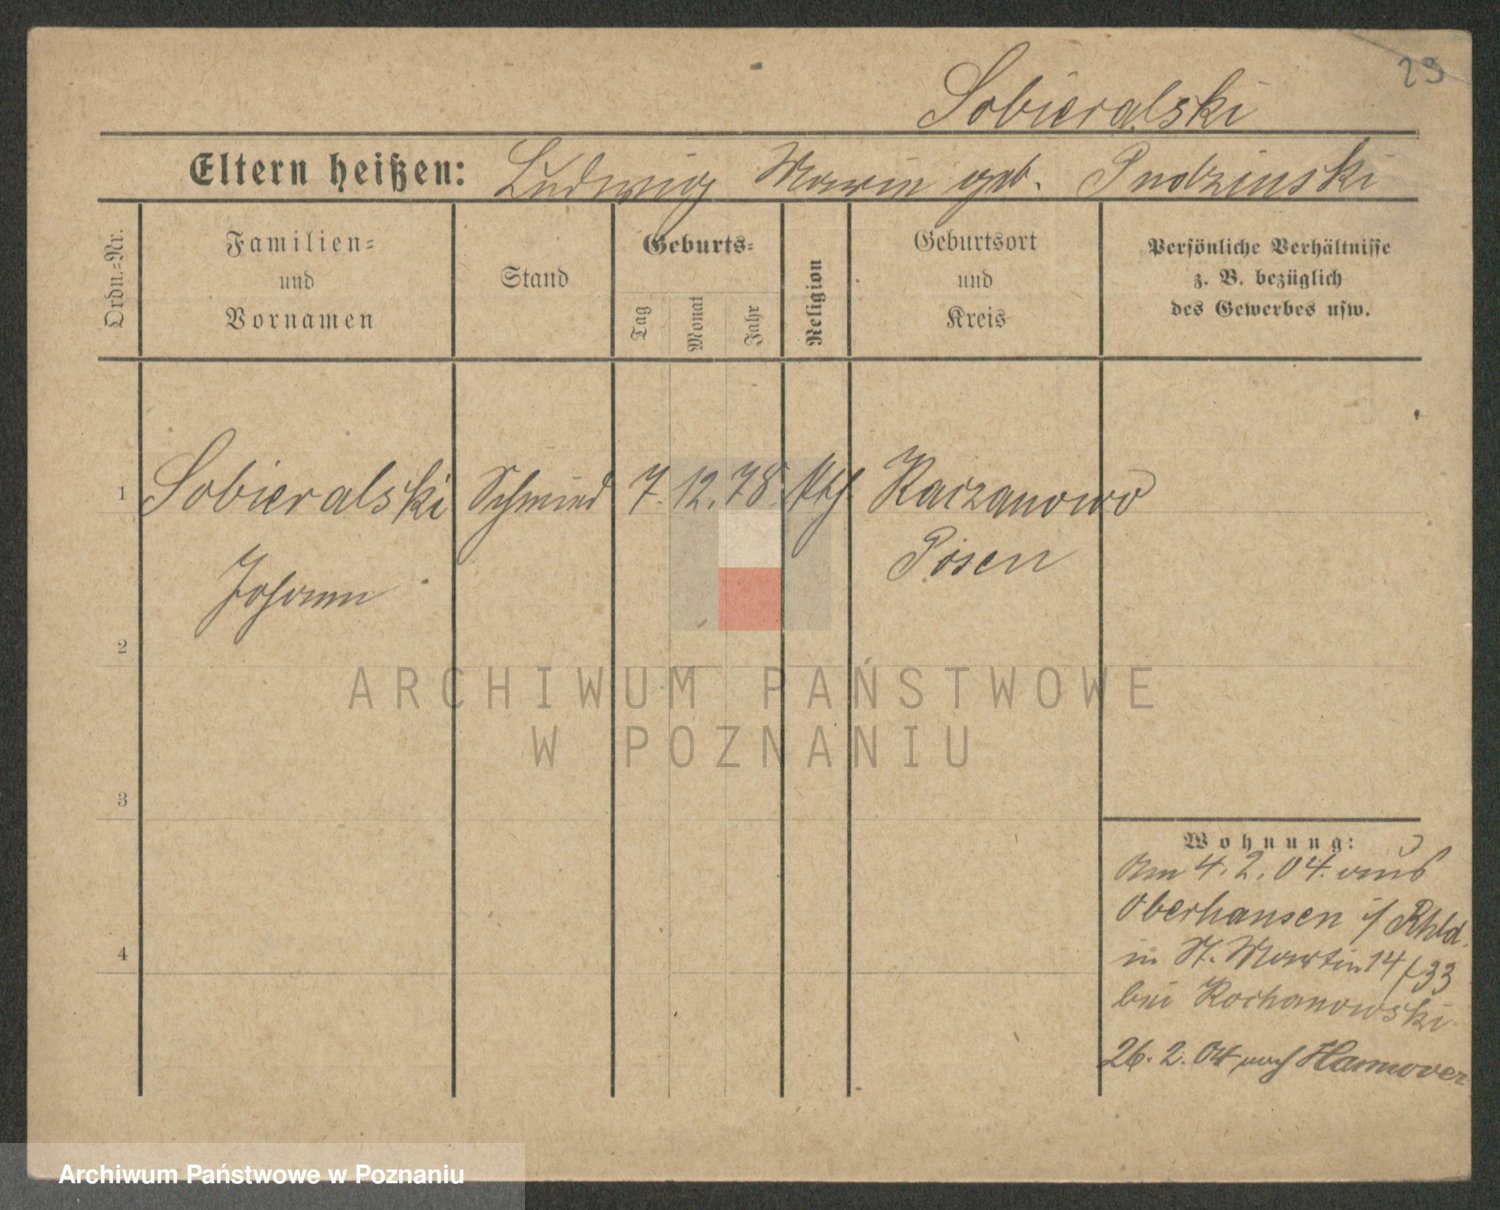 29
Sobieralski
Eltern heißen: Ludwig Marie geb. Pudzinski
Ordn.=Nr.
Familien=
und
Vornamen
Stand
Geburts=
Tag
Monat
Jahr
Religion
Geburtsort
und
Kreis
Persönliche Verhältnisse
z. B. bezüglich
des Gewerbes usw.
1 Sobieralski Schmied 7. 12. 78. kth. Kaczanowo
Johann Posen
2
3
4
Wohnung:
Am 4. 2. 04. aus
Oberhausen i/ Rhld.
in St. Martin 14/33
bei Kochanowski
26. 2. 04 nach Hannover
ARCHIWUM PAŃSTWOWE
W POZNANIU
Archiwum Państwowe w Poznaniu